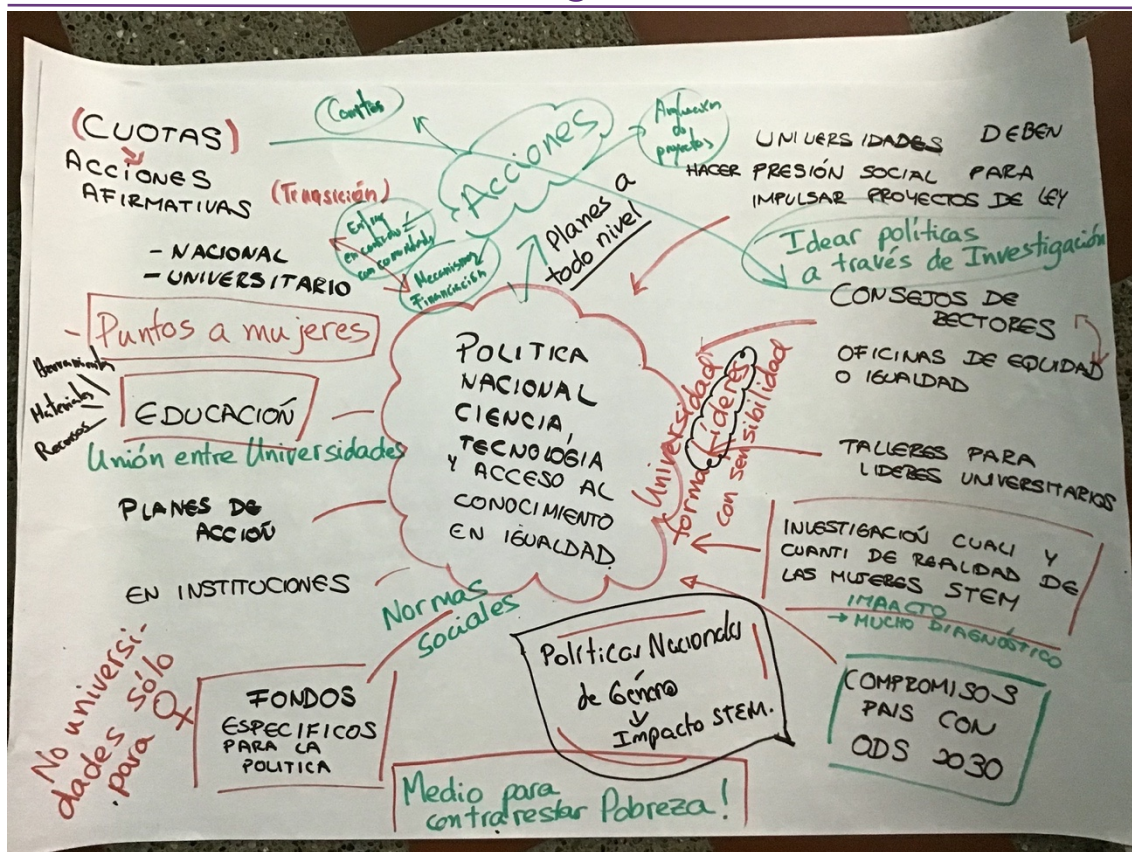 (CUOTAS)
ACCIONES
AFIRMATIVAS
(Transición)
- NACIONAL
- UNIVERSITARIO
- Puntos a mujeres
Herramientas
Materiales
Recursos
EDUCACIÓN
Unión entre Universidades
PLANES DE
ACCIÓN
EN INSTITUCIONES
No universi-
dades sólo
para ♀
FONDOS
ESPECIFICOS
PARA LA
POLITICA
Normas
Sociales
Comités
Acciones
de
proyectos
en contacto
con comunidades
Mecanismos
Financiación
Planes a
todo nivel
POLITICA
NACIONAL
CIENCIA,
TECNOLOGÍA
Y ACCESO AL
CONOCIMIENTO
EN IGUALDAD.
Universidad
forma Líderes
con sensibilidad
Políticas Nacionales
de Género
Impacto STEM.
Medio para
contrarrestar Pobreza!
UNIVERSIDADES DEBEN
HACER PRESIÓN SOCIAL PARA
IMPULSAR PROYECTOS DE LEY
Idear políticas
a través de Investigación
CONSEJOS DE
RECTORES
OFICINAS DE EQUIDAD
O IGUALDAD
TALLERES PARA
LIDERES UNIVERSITARIOS
INVESTIGACIÓN CUALI Y
CUANTI DE REALIDAD DE
LAS MUJERES STEM
IMPACTO
→ MUCHO DIAGNÓSTICO
COMPROMISOS
PAIS CON
ODS 2030